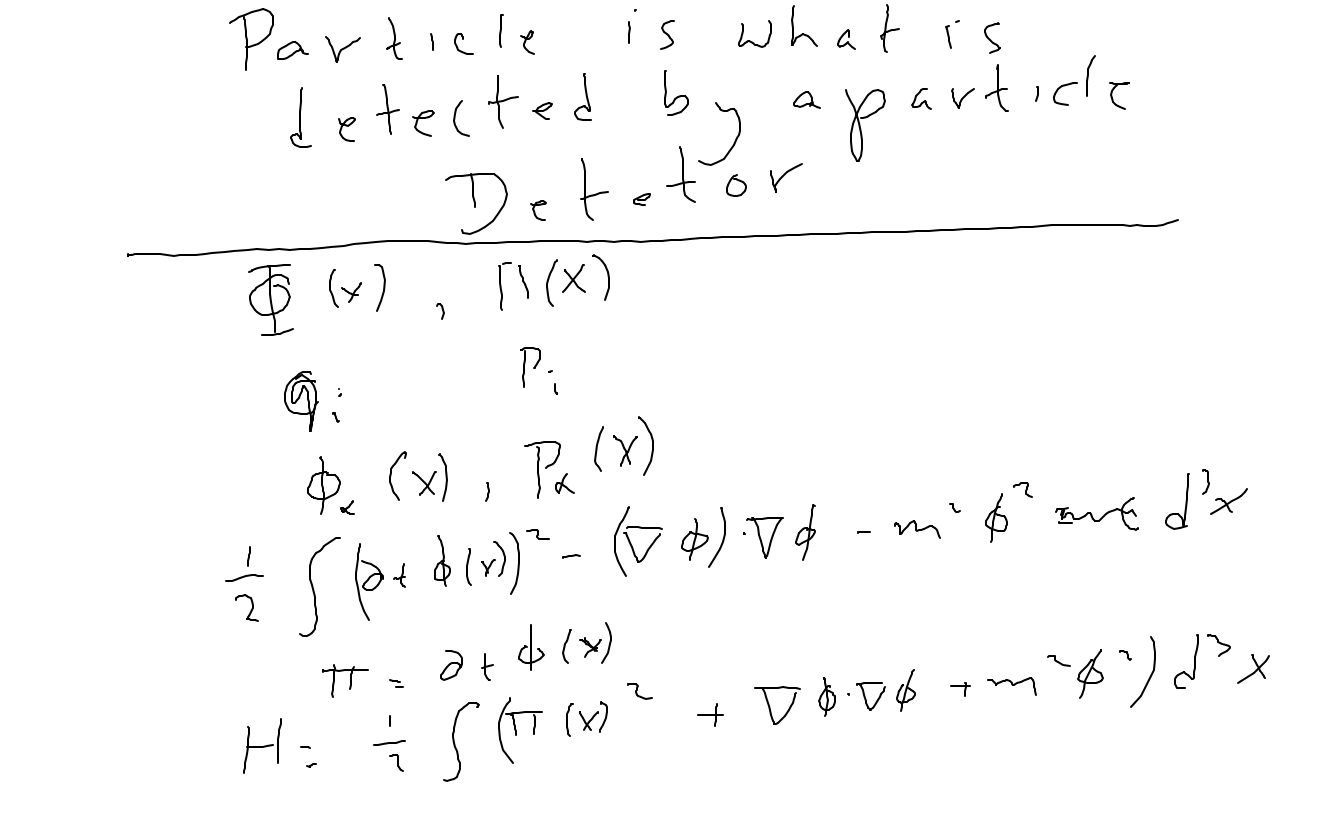 Particle is what is
detected by a particle
Detetor
Φ(x), Π(x)
q_i p_i
ϕ_α(x), P_α(x)
1/2 ∫(∂t ϕ(x))² - (∇ϕ)·∇ϕ - m²ϕ² d³x
π = ∂t ϕ(x)
H = 1/2 ∫(π(x)² + ∇ϕ·∇ϕ + m²ϕ²) d³x